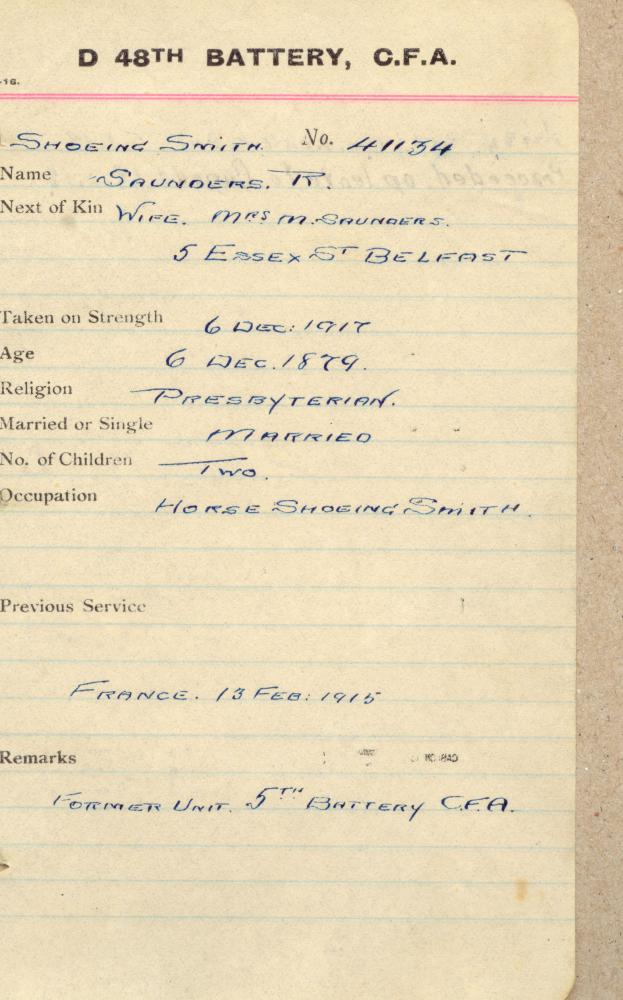 D 48TH BATTERY, C.F.A.
-16.
SHOEING SMITH. No. 41134
Name SAUNDERS. R.
Next of Kin WIFE. MRS M. SAUNDERS.
5 ESSEX ST BELFAST
Taken on Strength 6 DEC: 1917
Age 6 DEC. 1879.
Religion PRESBYTERIAN.
Married or Single MARRIED
No. of Children TWO.
Occupation HORSE SHOEING SMITH.
Previous Service
FRANCE. 13 FEB: 1915
Remarks
FORMER UNIT. 5TH BATTERY C.F.A.